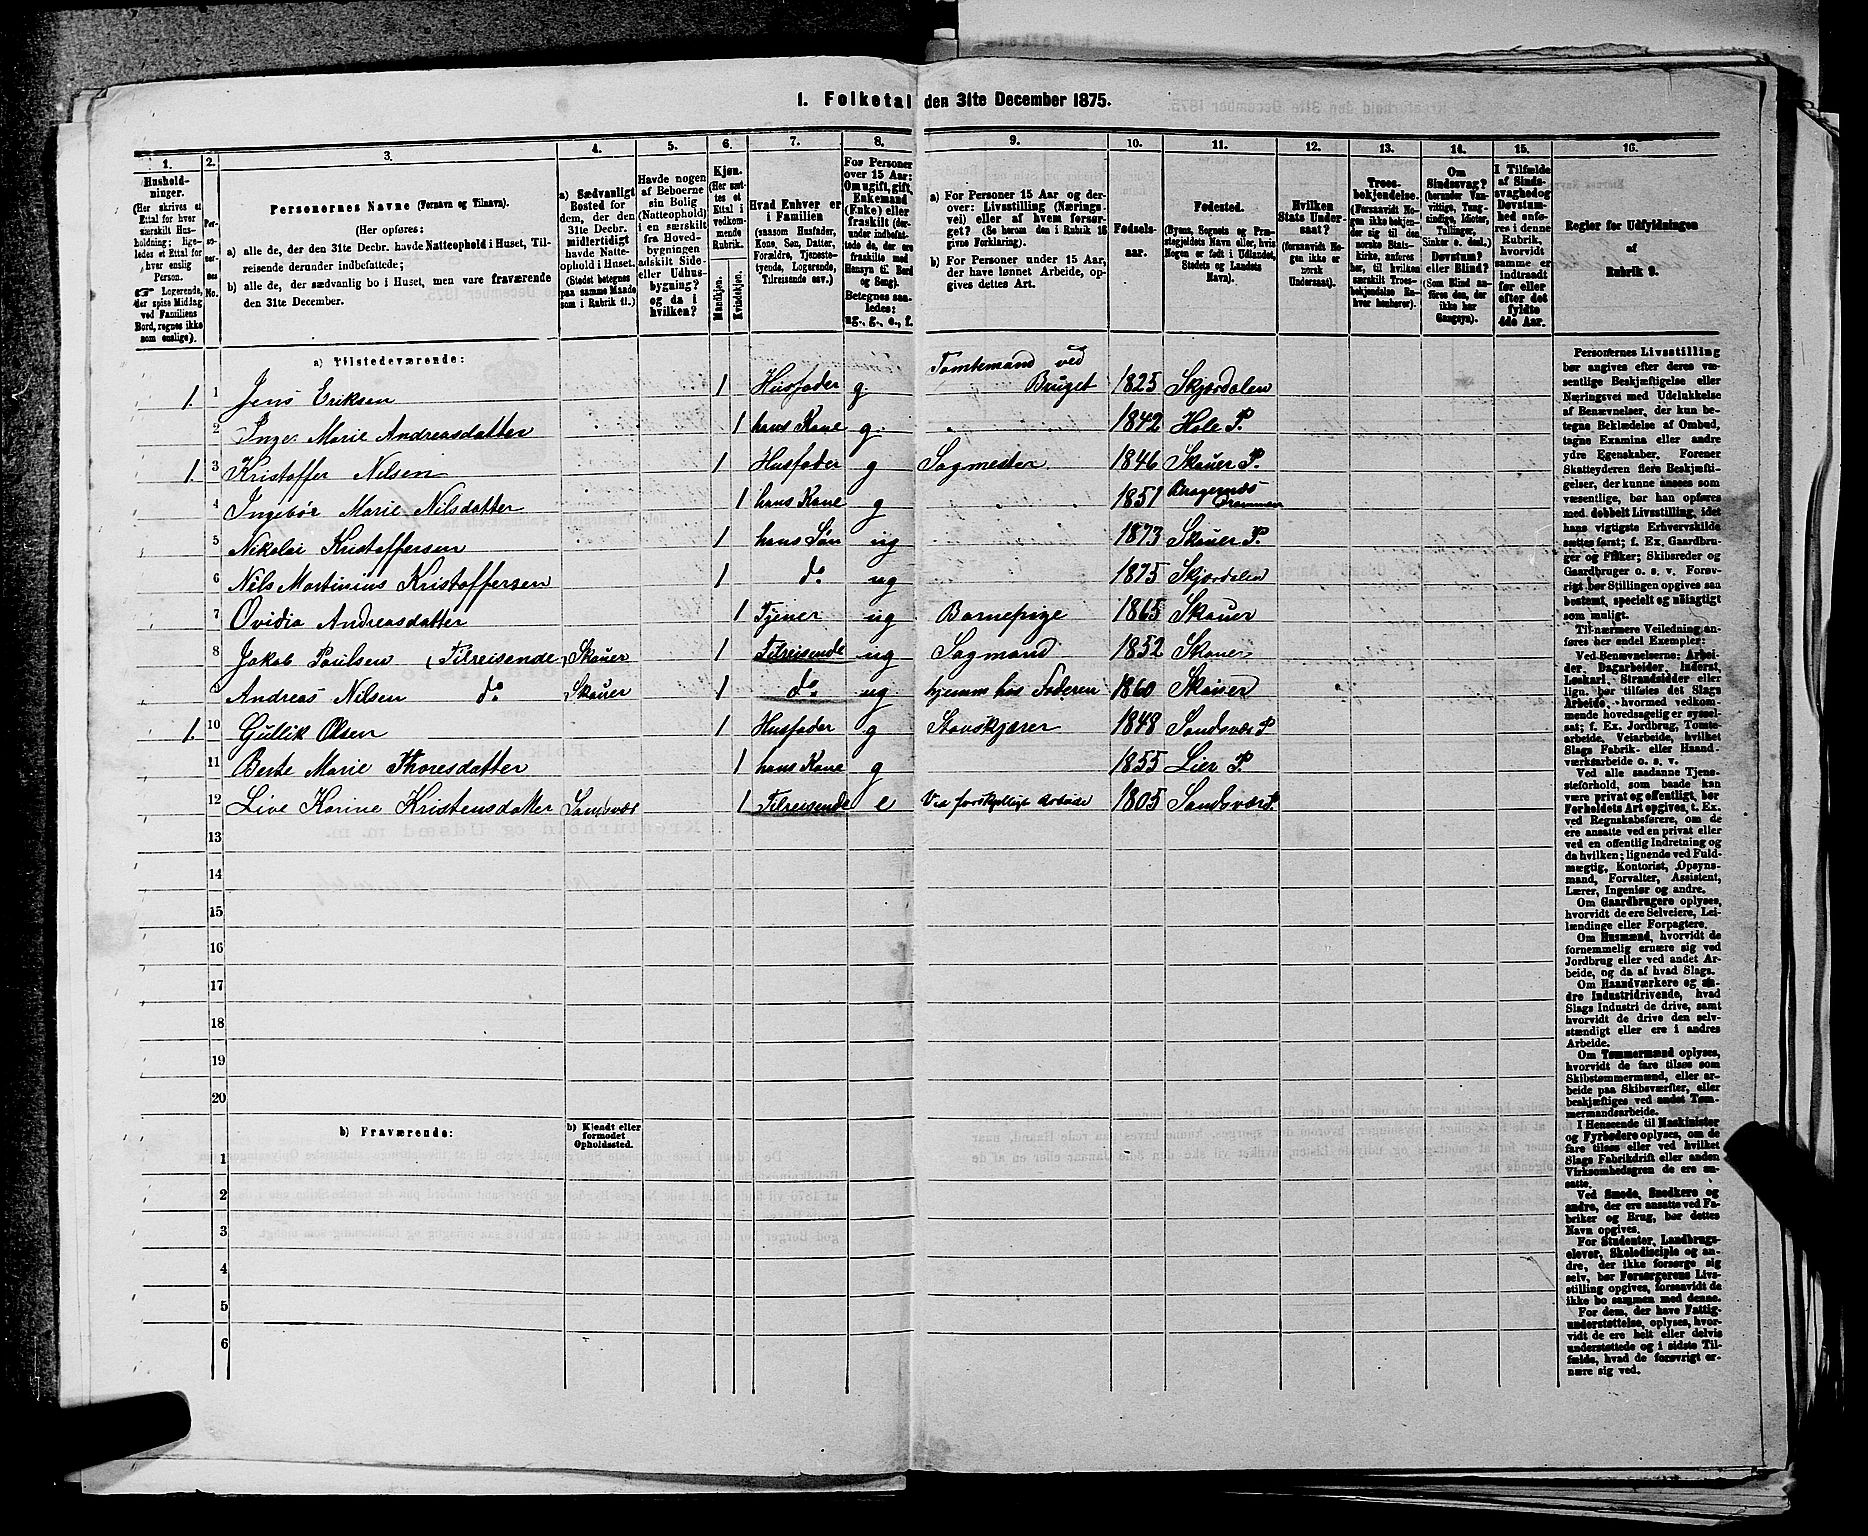 1. Folketal den 31te December 1875.
1. 2. 3. 4. 5. 6. 7. 8. 9. 10. 11. 12. 13. 14. 15. 16.
Hushold-
ninger.
(Her skrives et
Ettal for hver
særskilt Hus-
holdning; lige-
ledes et Ettal for
hver enslig
Person.
Logerende,
der spise Middag
ved Familiens
Bord, regnes ikke
som enslige).
Per-
so-
ner-
nes
No.
Personernes Navne (Fornavn og Tilnavn).
(Her opføres:
a) alle de, der den 31te Decbr. havde Natteophold i Huset, Til-
reisende derunder indbefattede;
b) alle de, der sædvanlig bo i Huset, men vare fraværende
den 31te December.
a) Sædvanligt
Bosted for
dem, der den
31te Decbr.
midlertidigt
havde Natte-
ophold i Huset.
(Stedet betegnes
paa samme Maade
som i Rubrik 11.)
Havde nogen
af Beboerne
sin Bolig
(Natteophold)
i en særskilt
fra Hoved-
bygningen
adskilt Side-
eller Udhus-
bygning?
og da i
hvilken?
Kjøn.
(Her sæt-
tes et
Ettal i
vedkom-
mende
Rubrik.
Mandkjøn.
Kvindekjøn.
Hvad Enhver er
i Familien
(saasom Husfader,
Kone, Søn, Datter,
Forældre, Tjeneste-
tyende, Logerende,
Tilreisende osv.)
For Personer
over 15 Aar:
Om ugift, gift,
Enkemand
(Enke) eller
fraskilt (der-
under indbefat-
tede de, der ere
fraskilte med
Hensyn til Bord
og Seng).
Betegnes saa-
ledes:
ug., g., e., f.
a) For Personer 15 Aar og der-
over: Livsstilling (Nærings-
vei) eller af hvem forsør-
get? (Se herom den i Rubrik 16
givne Forklaring).
b) For Personer under 15 Aar,
der have lønnet Arbeide, op-
gives dettes Art.
Fødsels-
aar.
Fødested.
(Byens, Sognets og Præ-
stegjeldets Navn eller, hvis
Nogen er født i Udlandet,
Stedets og Landets
Navn).
Hvilken
Stats Under-
saat?
(forsaavidt No-
gen ikke er
norsk
Undersaat).
Troes-
bekjendelse.
(Forsaavidt No-
gen ikke bekjen-
der sig til den
norske Stats-
kirke, anføres
her, til hvilken
særskilt Troes-
bekjendelse En-
hver henhører).
Om
Sindssvag?
(herunder Van-
vittige, Tung-
sindige, Idioter,
Tullinger,
Sinker o. desl.)
Døvstum?
eller Blind?
(Som Blind an-
føres den, der
ikke har
Gangsyn).
I Tilfælde
af Sinds-
svaghed og
Døvstum-
hed anfø-
res i denne
Rubrik,
hvorvidt
samme er
indtraadt
før eller
efter det
fyldte
4de Aar.
Regler for Udfyldningen
af
Rubrik 9.
a) Tilstedeværende:
1 1 Jens Eriksen 1 Husfader g. Tomtemand ved Bruget 1825 Skjordalen
2 Inge Marie Andreasdatter 1 hans Kone g. 1842 Hole P.
1 3 Kristoffer Nilsen 1 Husfader g Sagmester 1846 Skauer P.
4 Ingebør Marie Nilsdatter 1 hans Kone g 1851 Bragernæs Drammen
5 Nikolai Kristoffersen 1 hans Søn ug 1873 Skauer P.
6 Nils Martinius Kristoffersen 1 do. ug 1875 Skjordalen
7 Ovidia Andreasdatter 1 Tjener ug Barnepige 1865 Skauer
8 Jakob Poulsen (Tilreisende) Skauer 1 Tilreisende ug Sagmand 1852 Skauer
9 Andreas Nilsen do. Skauer 1 do. ug hjemm hos Faderen 1860 Skauer
1 10 Gullik Olsen 1 Husfader g Stavskjærer 1848 Sandsvær P
11 Berte Marie Thoresdatter 1 hans Kone g 1855 Lier P.
12 Live Karine Kristensdatter Sandsvær 1 Tilreisende e Ved forskjellige Arbeide 1805 Sandsvær P.
13
14
15
16
17
18
19
20
b) Fraværende: b) Kjendt eller
formodet
Opholdssted.
1
2
3
4
5
6
Personernes Livsstilling
bør angives efter deres væ-
sentlige Beskjæftigelse eller
Næringsvei med Udelukkelse
af Benævnelser, der kun be-
tegne Beklædelse af Ombud,
tagne Examina eller andre
ydre Egenskaber. Forener
Skatteyderen flere Beskjæfti-
gelser, der kunne ansees som
væsentlige, bør han opføres
med dobbelt Livsstilling, idet
hans vigtigste Erhvervskilde
sættes først; f. Ex. Gaardbru-
ger og Fisker; Skibsreder og
Gaardbruger o. s. v. Forøv-
rigt bør Stillingen opgives saa
bestemt, specielt og nøiagtigt
som muligt.
Til nærmere Veiledning an-
føres her endel Exempler:
Ved Benævnelserne: Arbei-
der, Dagarbeider, Inderst,
Løskarl, Strandsidder eller
lign. bør tilføies det Slags
Arbeide, hvormed vedkom-
mende hovedsagelig er syssel-
sat; f. Ex. Jordbrug, Tomte-
arbeide, Veiarbeide, hvilket
Slags Fabrik- eller Haand-
værksarbeide o. s. v.
Ved alle saadanne Tjene-
steforhold, som baade kan
være privat og offentligt, bør
Forholdets Art opgives, t. Ex.
ved Regnskabsførere, om de
ere ansatte ved en privat eller
ved en offentlig Indretning og
da hvilken; lignende ved Fuld-
mægtig, Kontorist, Opsyns-
mand, Forvalter, Assistent,
Lærer, Ingeniør og andre.
Om Gaardbrugere oplyses,
hvorvidt de ere Selveiere, Lei-
lændinge eller Forpagtere.
Om Husmænd, hvorvidt de
fornemmelig ernære sig ved
Jordbrug eller ved andet Ar-
beide, og da af hvad Slags.
Om Haandværkere og an-
dre Industridrivende, hvad
Slags Industri de drive, samt
hvorvidt de drive den selv-
stændigt eller ere i andres
Arbeide.
Om Tømmermænd oplyses,
hvorvidt de fare tilsøs som
Skibstømmermænd, eller ar-
beide paa Skibsværfter, eller
beskjæftiges ved andet Tøm-
mermandsarbeide.
I Henseende til Maskinister
og Fyrbødere oplyses, om de
fare tilsøs eller ved hvilket
Slags Fabrikdrift eller anden
Virksomhedsgren de ere an-
satte.
Ved Smede, Snedkere og
andre, der ere ansatte ved Fa-
briker og Brug, bør dettes
Navn opgives.
For Studenter, Landbrugs-
elever, Skoledisciple og an-
dre, der ikke forsørge sig
selv, bør Forsørgerens Livs-
stilling opgives, forsaavidt de
ikke bo sammen med denne.
For dem, der have Fattig-
understøttelse, oplyses, hvor-
vidt de ere helt eller delvis
understøttede og i sidste Til-
fælde, hvad de forøvrigt er-
nære sig ved.